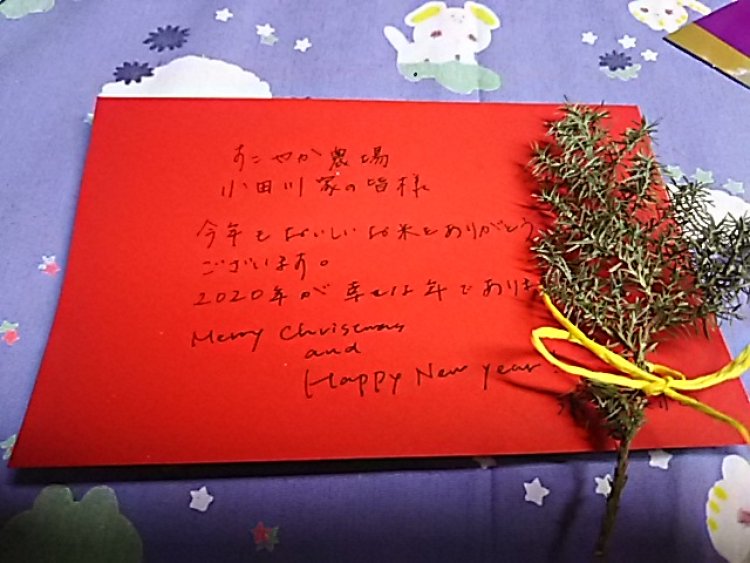 すこやか農場
小田川家の皆様
今年もおいしいお米をありがとう
ございます。
2020年が幸せな年でありま
Merry Christmas
and
Happy New year